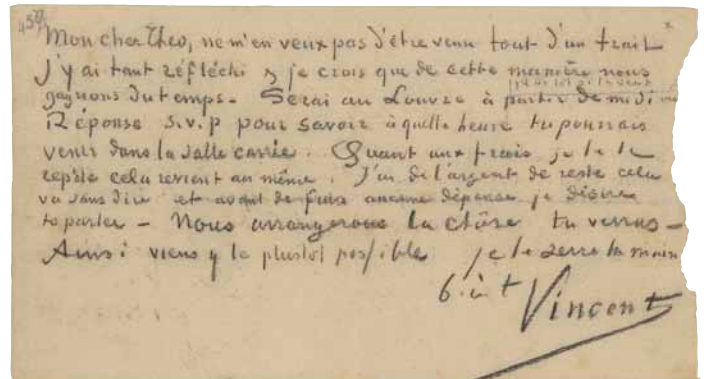 Mon cher Theo, ne m'en veux pas d'être venu tout d'un trait
J'y ai tant réfléchi & je crois que de cette manière nous
gagnons du temps. Serai au Louvre à partir de midi
ou plus tôt si tu veux
Réponse s.v.p pour savoir à quelle heure tu pourrais
venir dans la salle carrée. Quant aux frais je te le
repète cela revient au même. J'ai de l'argent de reste cela
va sans dire et avant de faire aucune dépense je désire
te parler – Nous arrangerons la chôse tu verras –
Ainsi viens y le plustot possible je te serre la main
b. à t
Vincent